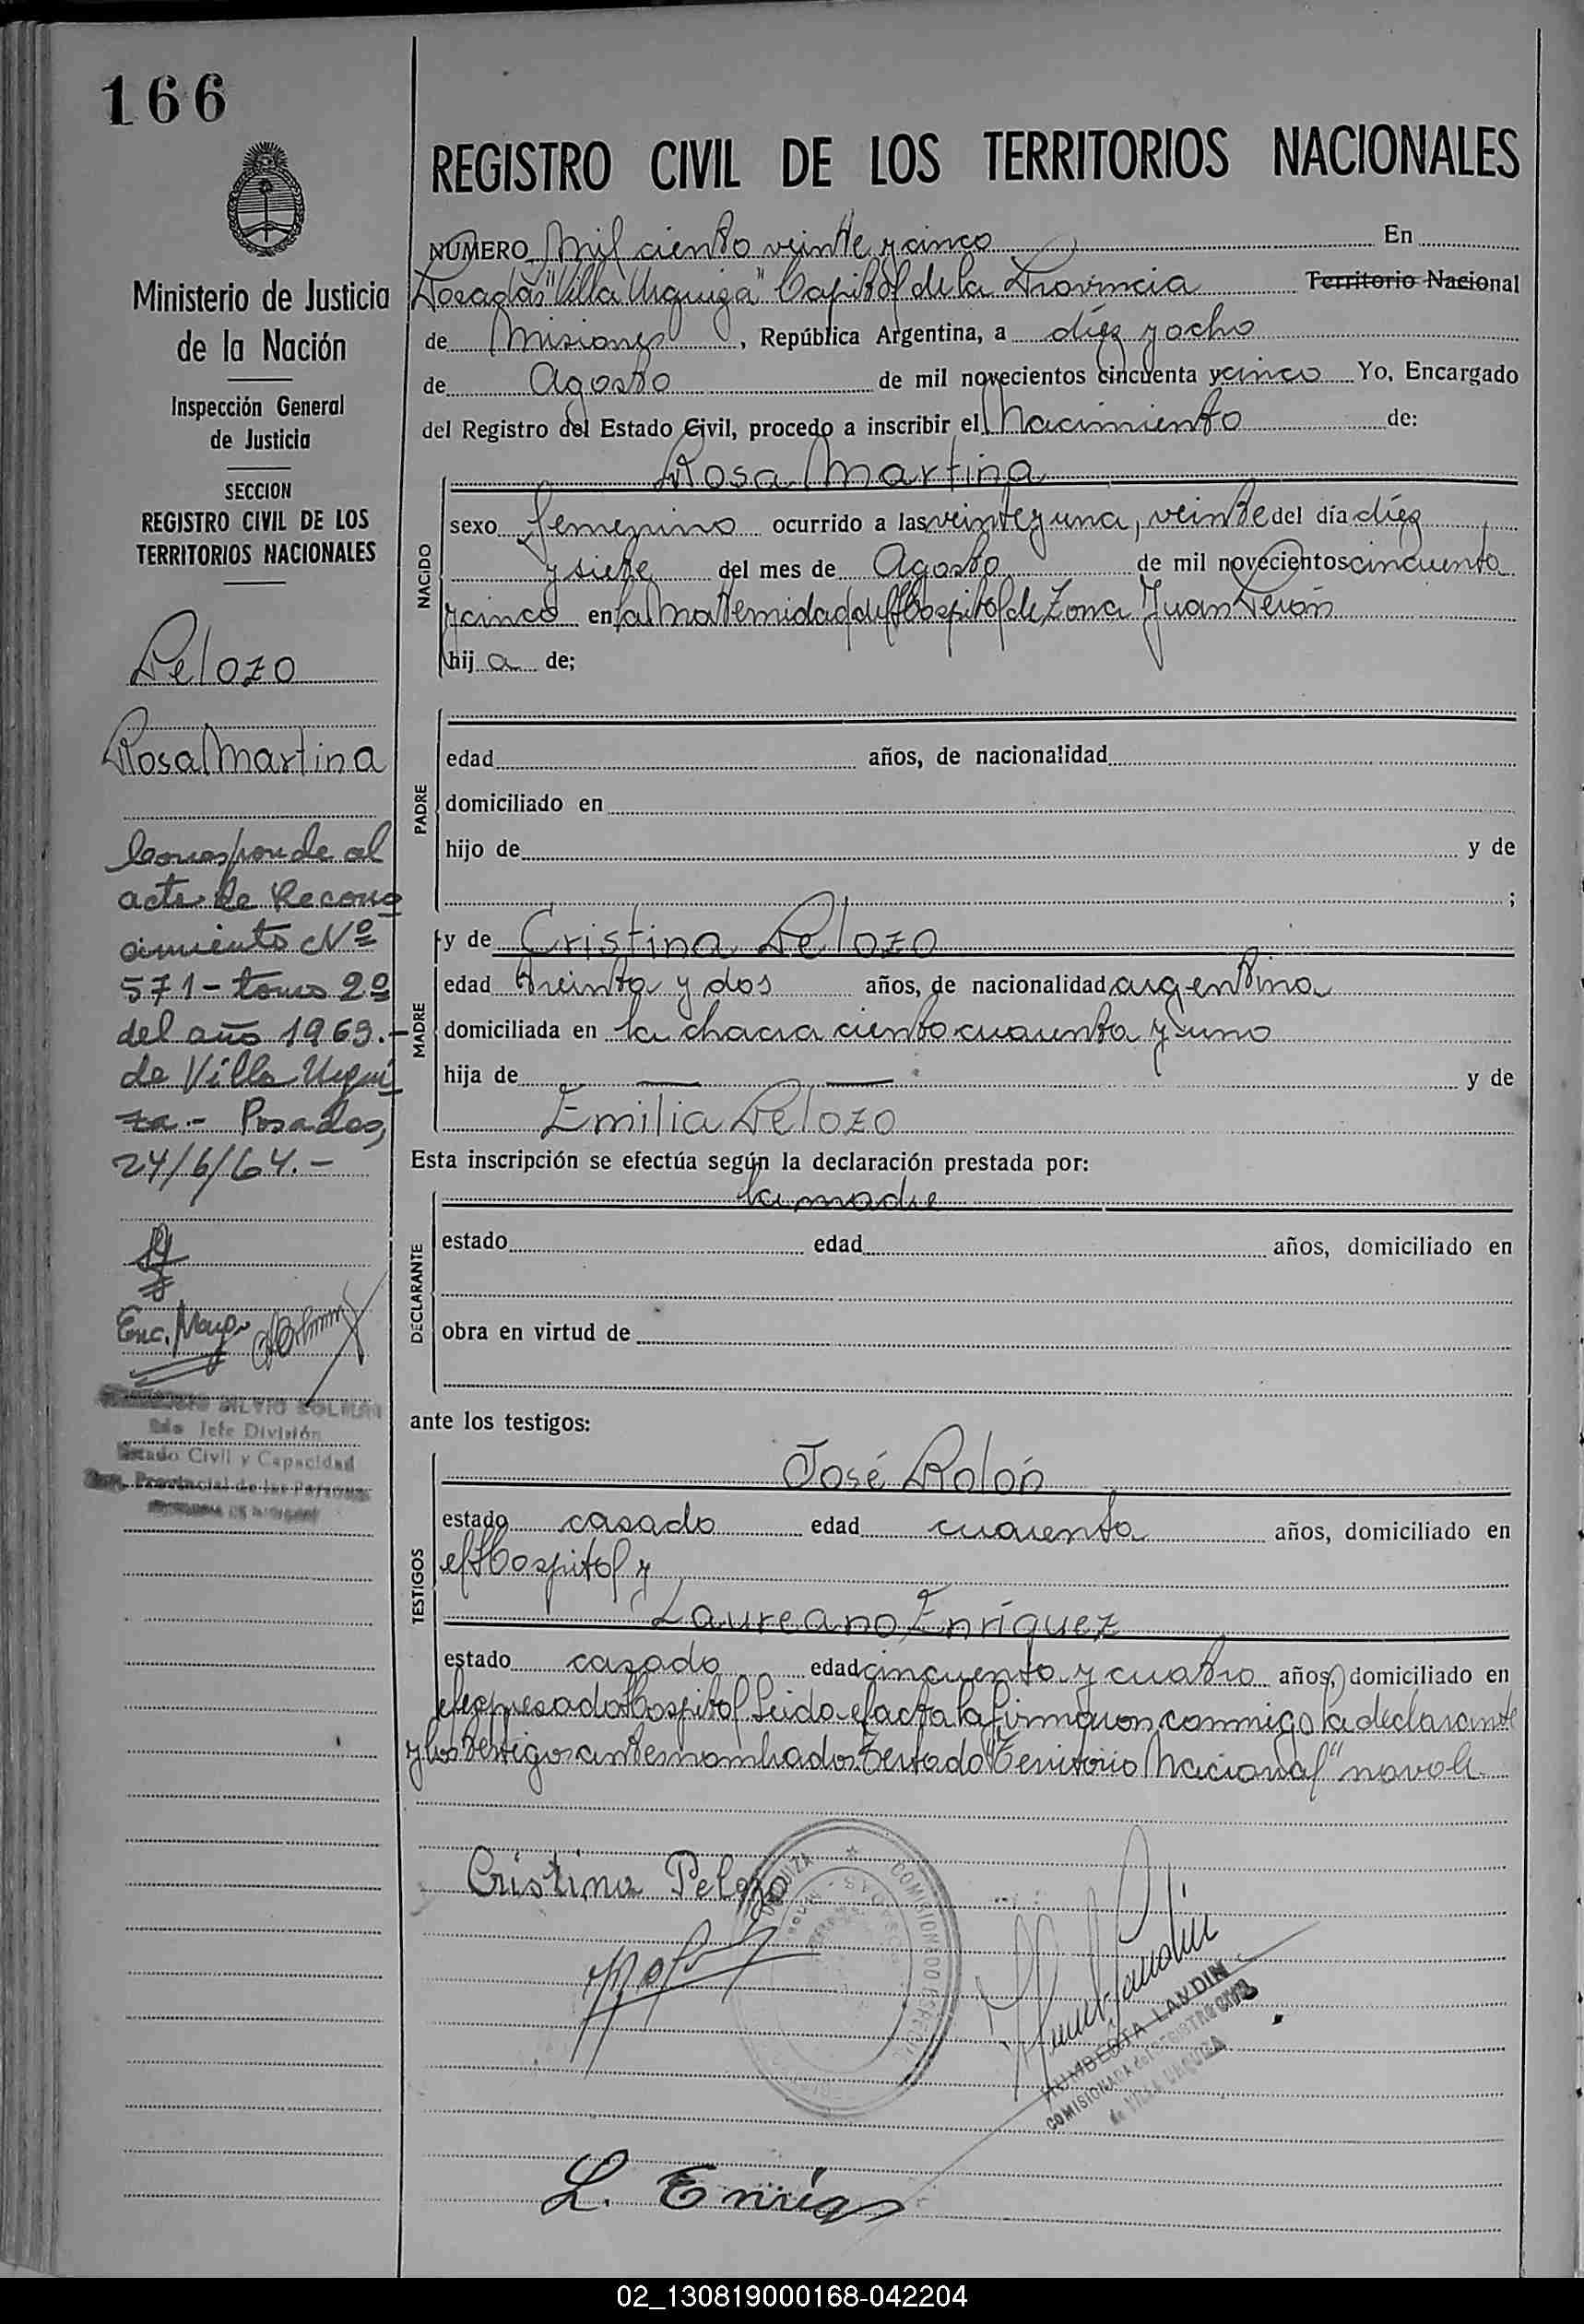 166
Ministerio de Justicia
de la Nación
Inspección General
de Justicia
SECCION
REGISTRO CIVIL DE LOS
TERRITORIOS NACIONALES
Pelozo
Rosa Martina
Corresponde al
acta de Recono
cimiento Nº
571 - tomo 2º
del año 1963.-
de Villa Urqui
za.- Posadas,
24/6/64.-
Enc. Mayo
SILVIO
2do Jefe División
Estado Civil y Capacidad
Provincial de las Personas
REGISTRO CIVIL DE LOS TERRITORIOS NACIONALES
NUMERO Mil ciento veinte y cinco En
Posadas "Villa Urquiza" Capital de la Provincia Territorio Nacional
de Misiones, República Argentina, a diez y ocho
de Agosto de mil novecientos cincuenta y cinco Yo, Encargado
del Registro del Estado Civil, procedo a inscribir el Nacimiento de:
NACIDO
Rosa Martina
sexo femenino ocurrido a las veinte y una, veinte del día diez
y siete del mes de Agosto de mil novecientos cincuenta
y cinco en la Maternidad del Hospital de Zona Juan Perón
hij a de;
PADRE
edad años, de nacionalidad
domiciliado en
hijo de y de
;
MADRE
y de Cristina Pelozo
edad treinta y dos años, de nacionalidad argentina
domiciliada en la chacra ciento cuarenta y uno
hija de — — y de
Emilia Pelozo
Esta inscripción se efectúa según la declaración prestada por:
DECLARANTE
la madre
estado edad años, domiciliado en
obra en virtud de
ante los testigos:
TESTIGOS
José Rolón
estado casado edad cuarenta años, domiciliado en
el Hospital y
Laureano Enríquez
estado casado edad cincuenta y cuatro años, domiciliado en
el expresado Hospital Leida el acta la firmaron conmigo la declarante
y los testigos antes nombrados. Testado "Territorio Nacional" no vale.
Cristina Pelozo
COMISIONADO ESPECIAL
HUMBERTA LANDIN
COMISIONADA del REGISTRO CIVIL
de VILLA URQUIZA
L. Enriqz
02_130819000168-042204